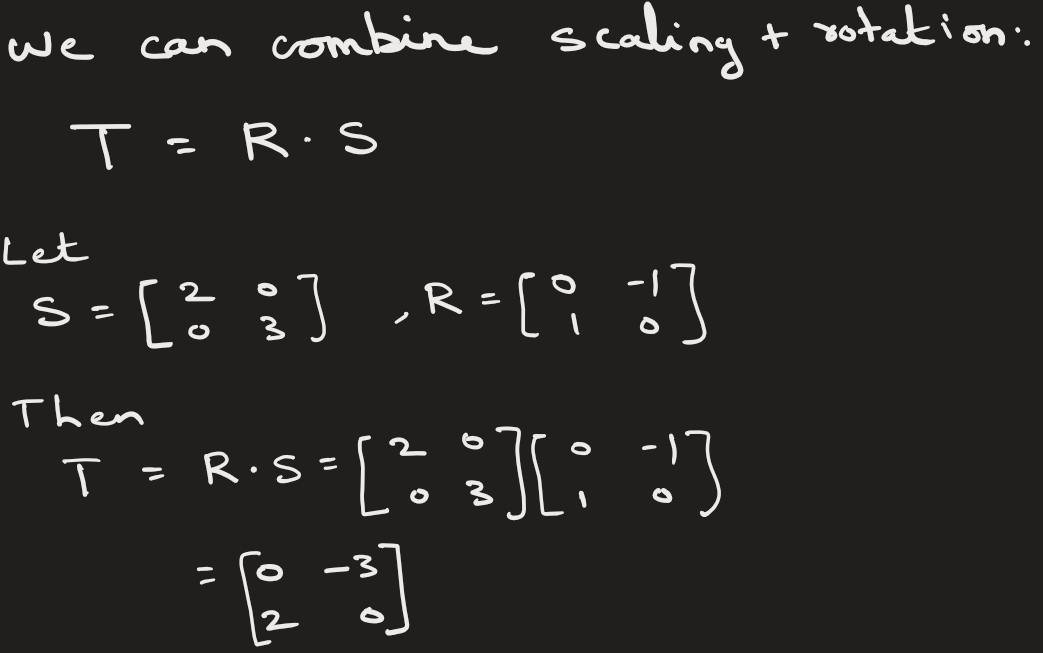 we can combine scaling + rotation:
T = R · S
Let
S = [ 2 0 ; 0 3 ] , R = [ 0 -1 ; 1 0 ]
Then
T = R · S = [ 2 0 ; 0 3 ] [ 0 -1 ; 1 0 ]
= [ 0 -3 ; 2 0 ]